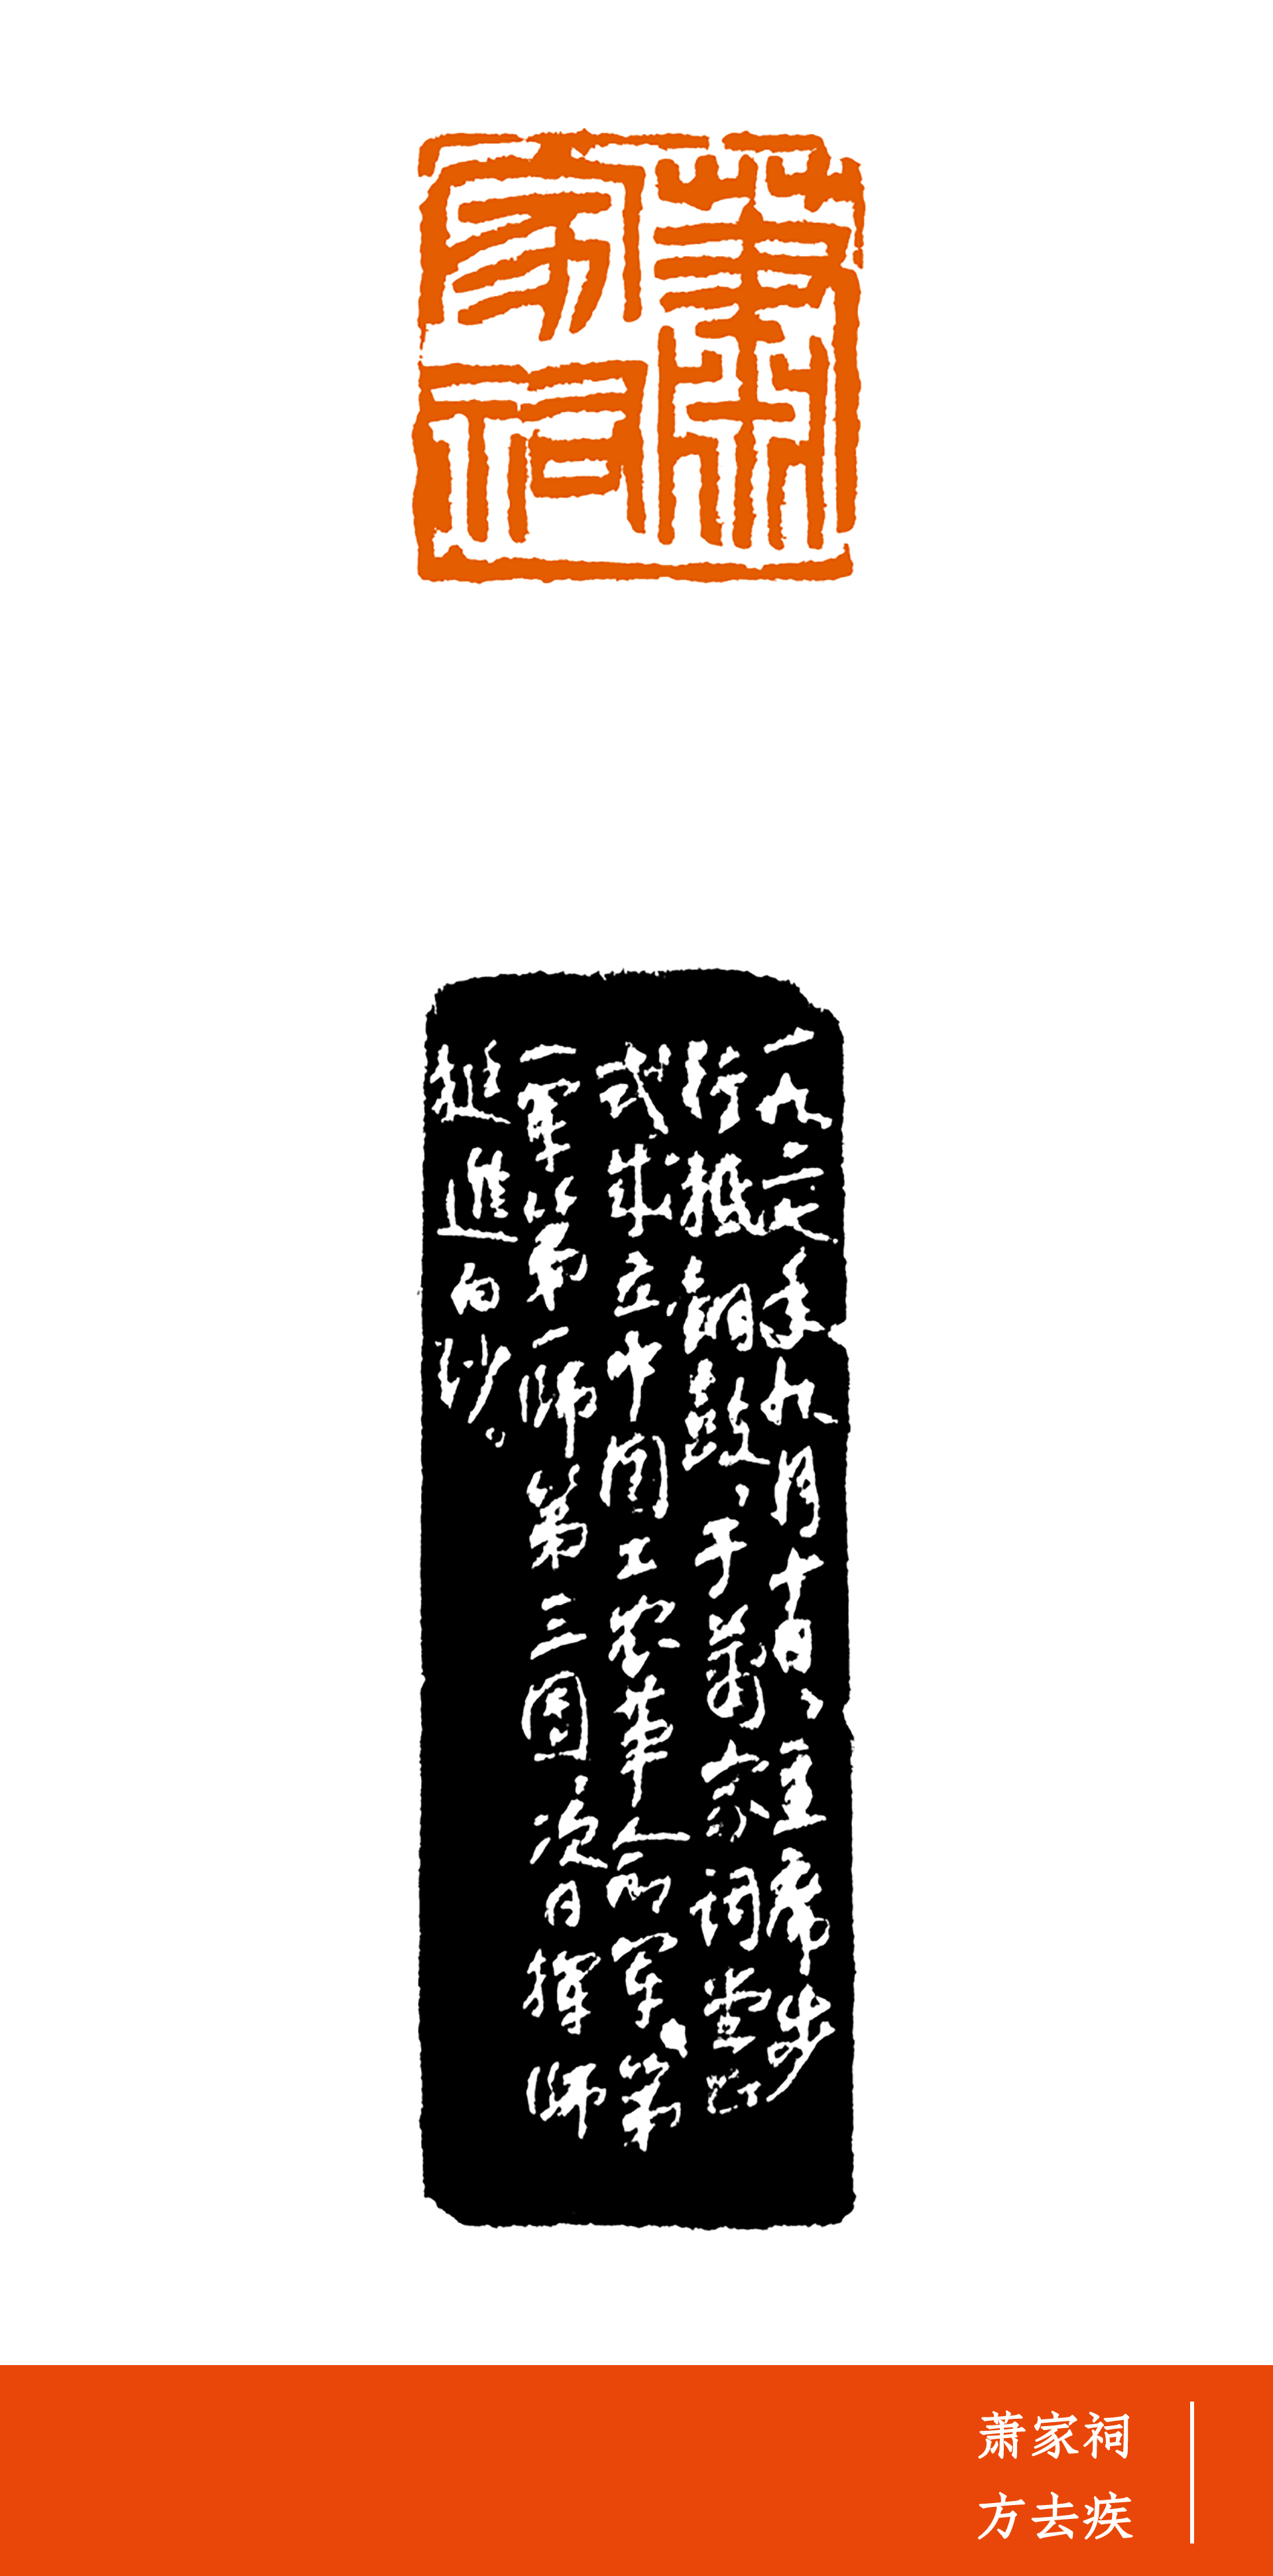 蕭
家祠
一九二七年九月十日、主席步
行抵铜鼓、于萧家祠堂正
式成立中国工农革命军第
一军第一师第三团次日挥师
挺進白沙。
萧家祠
方去疾